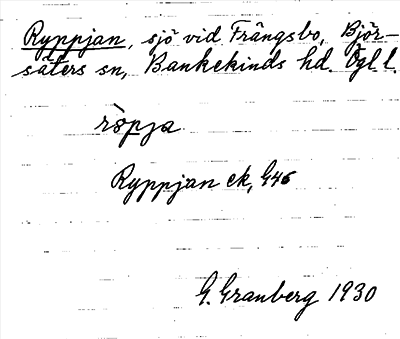 Ryppjan, sjö vid Frängsbo, Björ-
säters sn, Bankekinds hd. Ögl l.
röpja
Ryppjan ek, G46
G. Granberg 1930